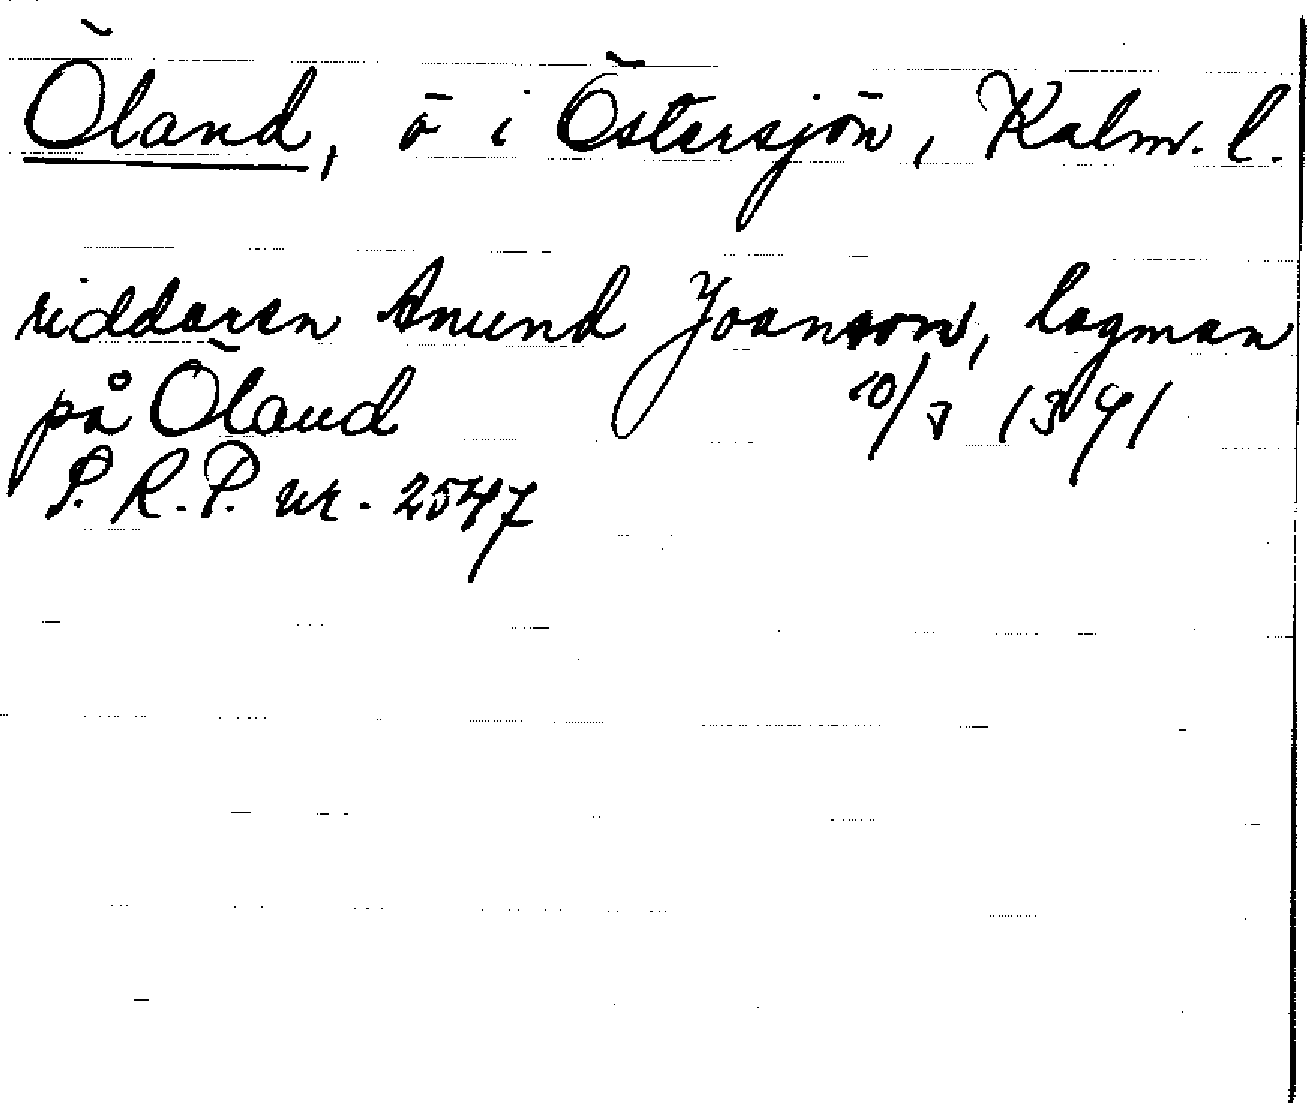 Öland, ö i Östersjön, Kalm. l.
riddaren Amund Joansson, lagman
på Öland 10/3 1391
P. R. P. nr. 2547